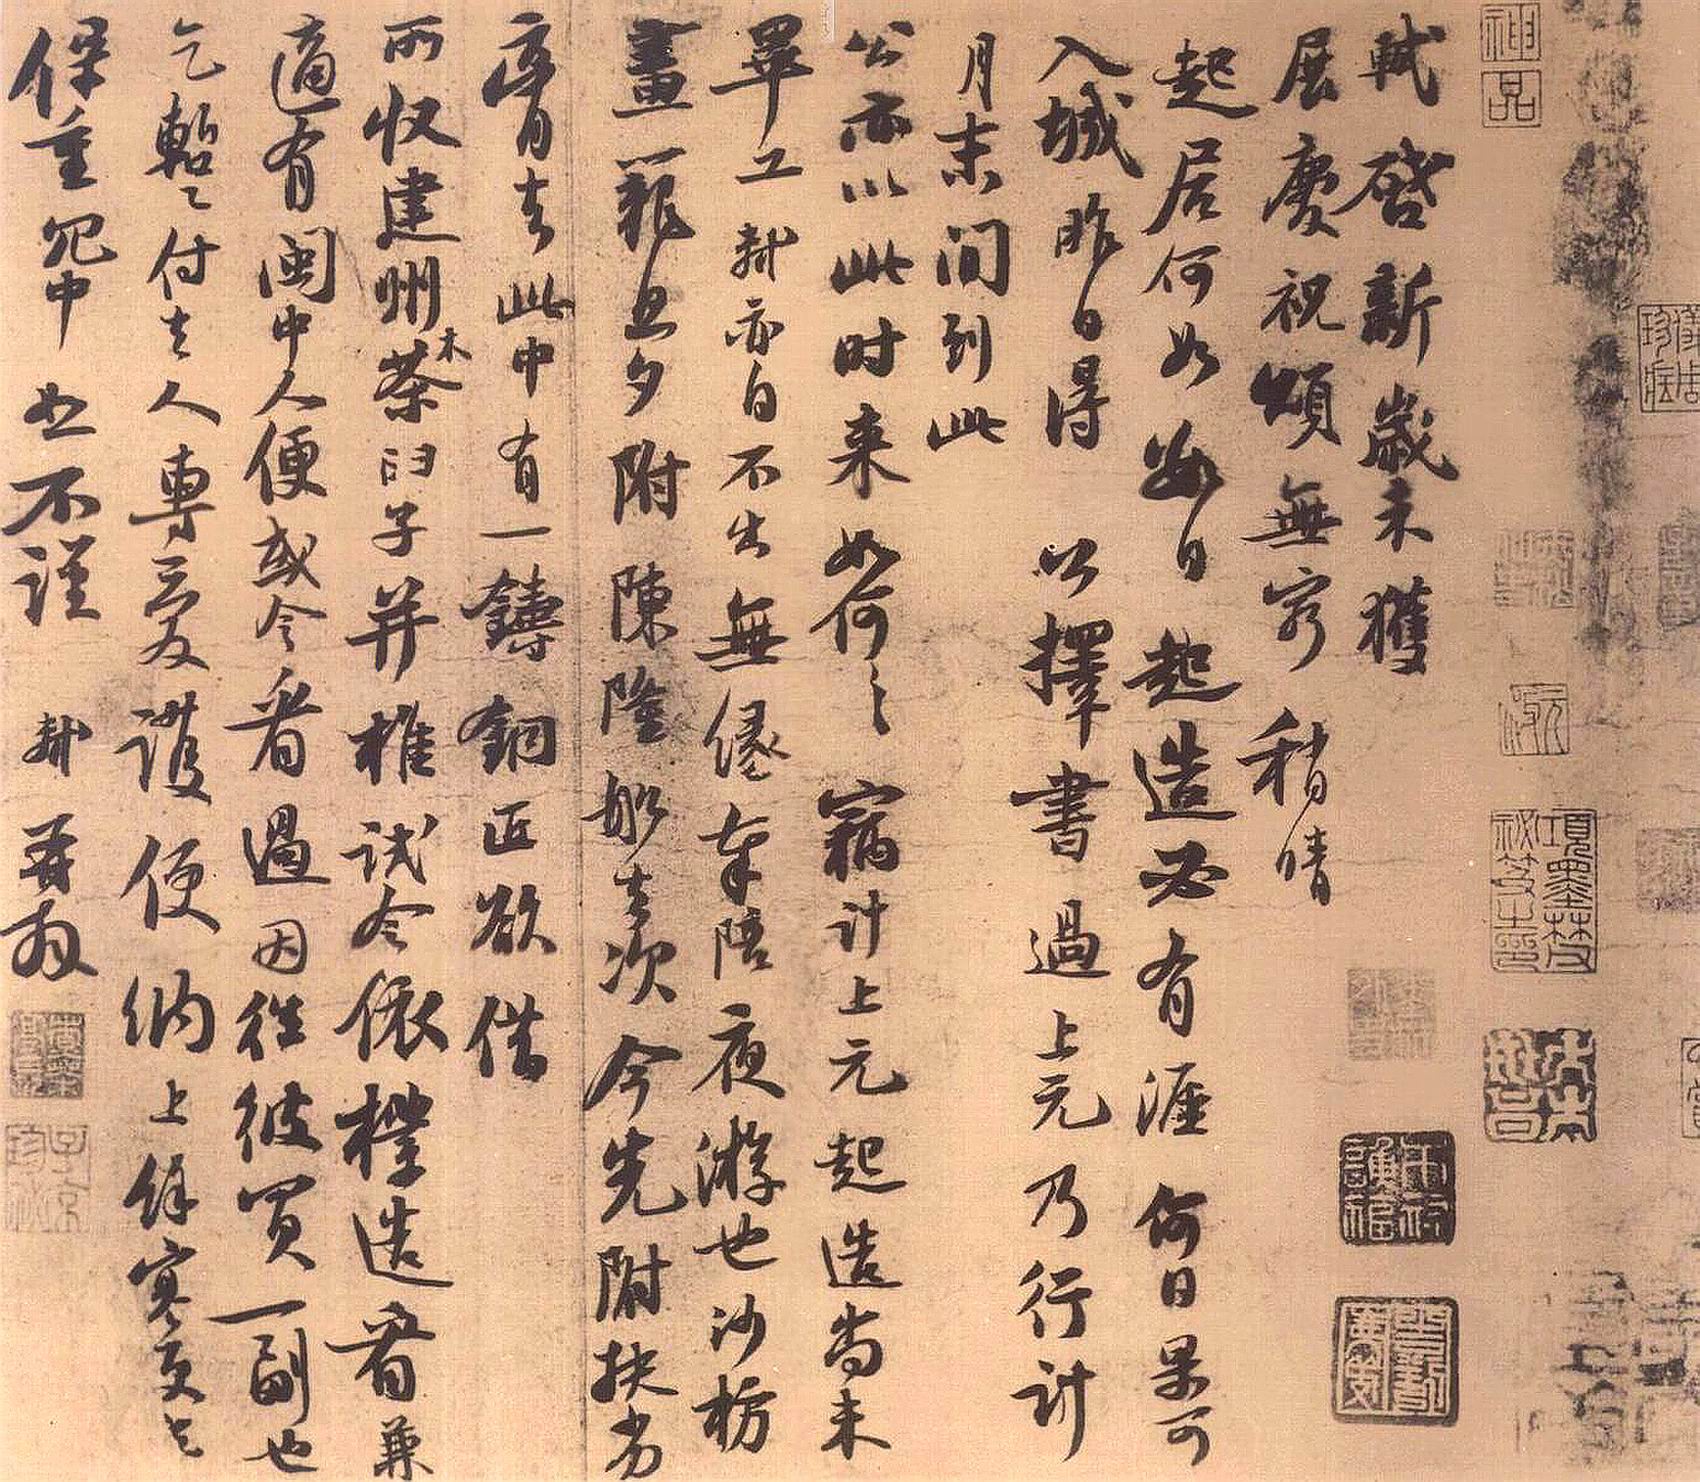 軾啓新歲未獲
展慶祝頌無窮稍晴
起居何如數日起造必有涯何日果可
入城昨日得公擇書過上元乃行計
月末間到此
公亦以此時來如何如何竊計上元起造尚未
畢工軾亦自不出無緣奉陪夜遊也沙枋
畫籠旦夕附陳隆船去次今先附扶劣
膏去此中有一鑄銅匠欲借
所收建州木茶臼子并椎試令依樣造看兼
適有閩中人便或令看過因往彼買一副也
乞暫付去人專愛護便納上餘寒更乞
保重冗中恕不謹軾再拜
神品
項墨林父祕笈之印